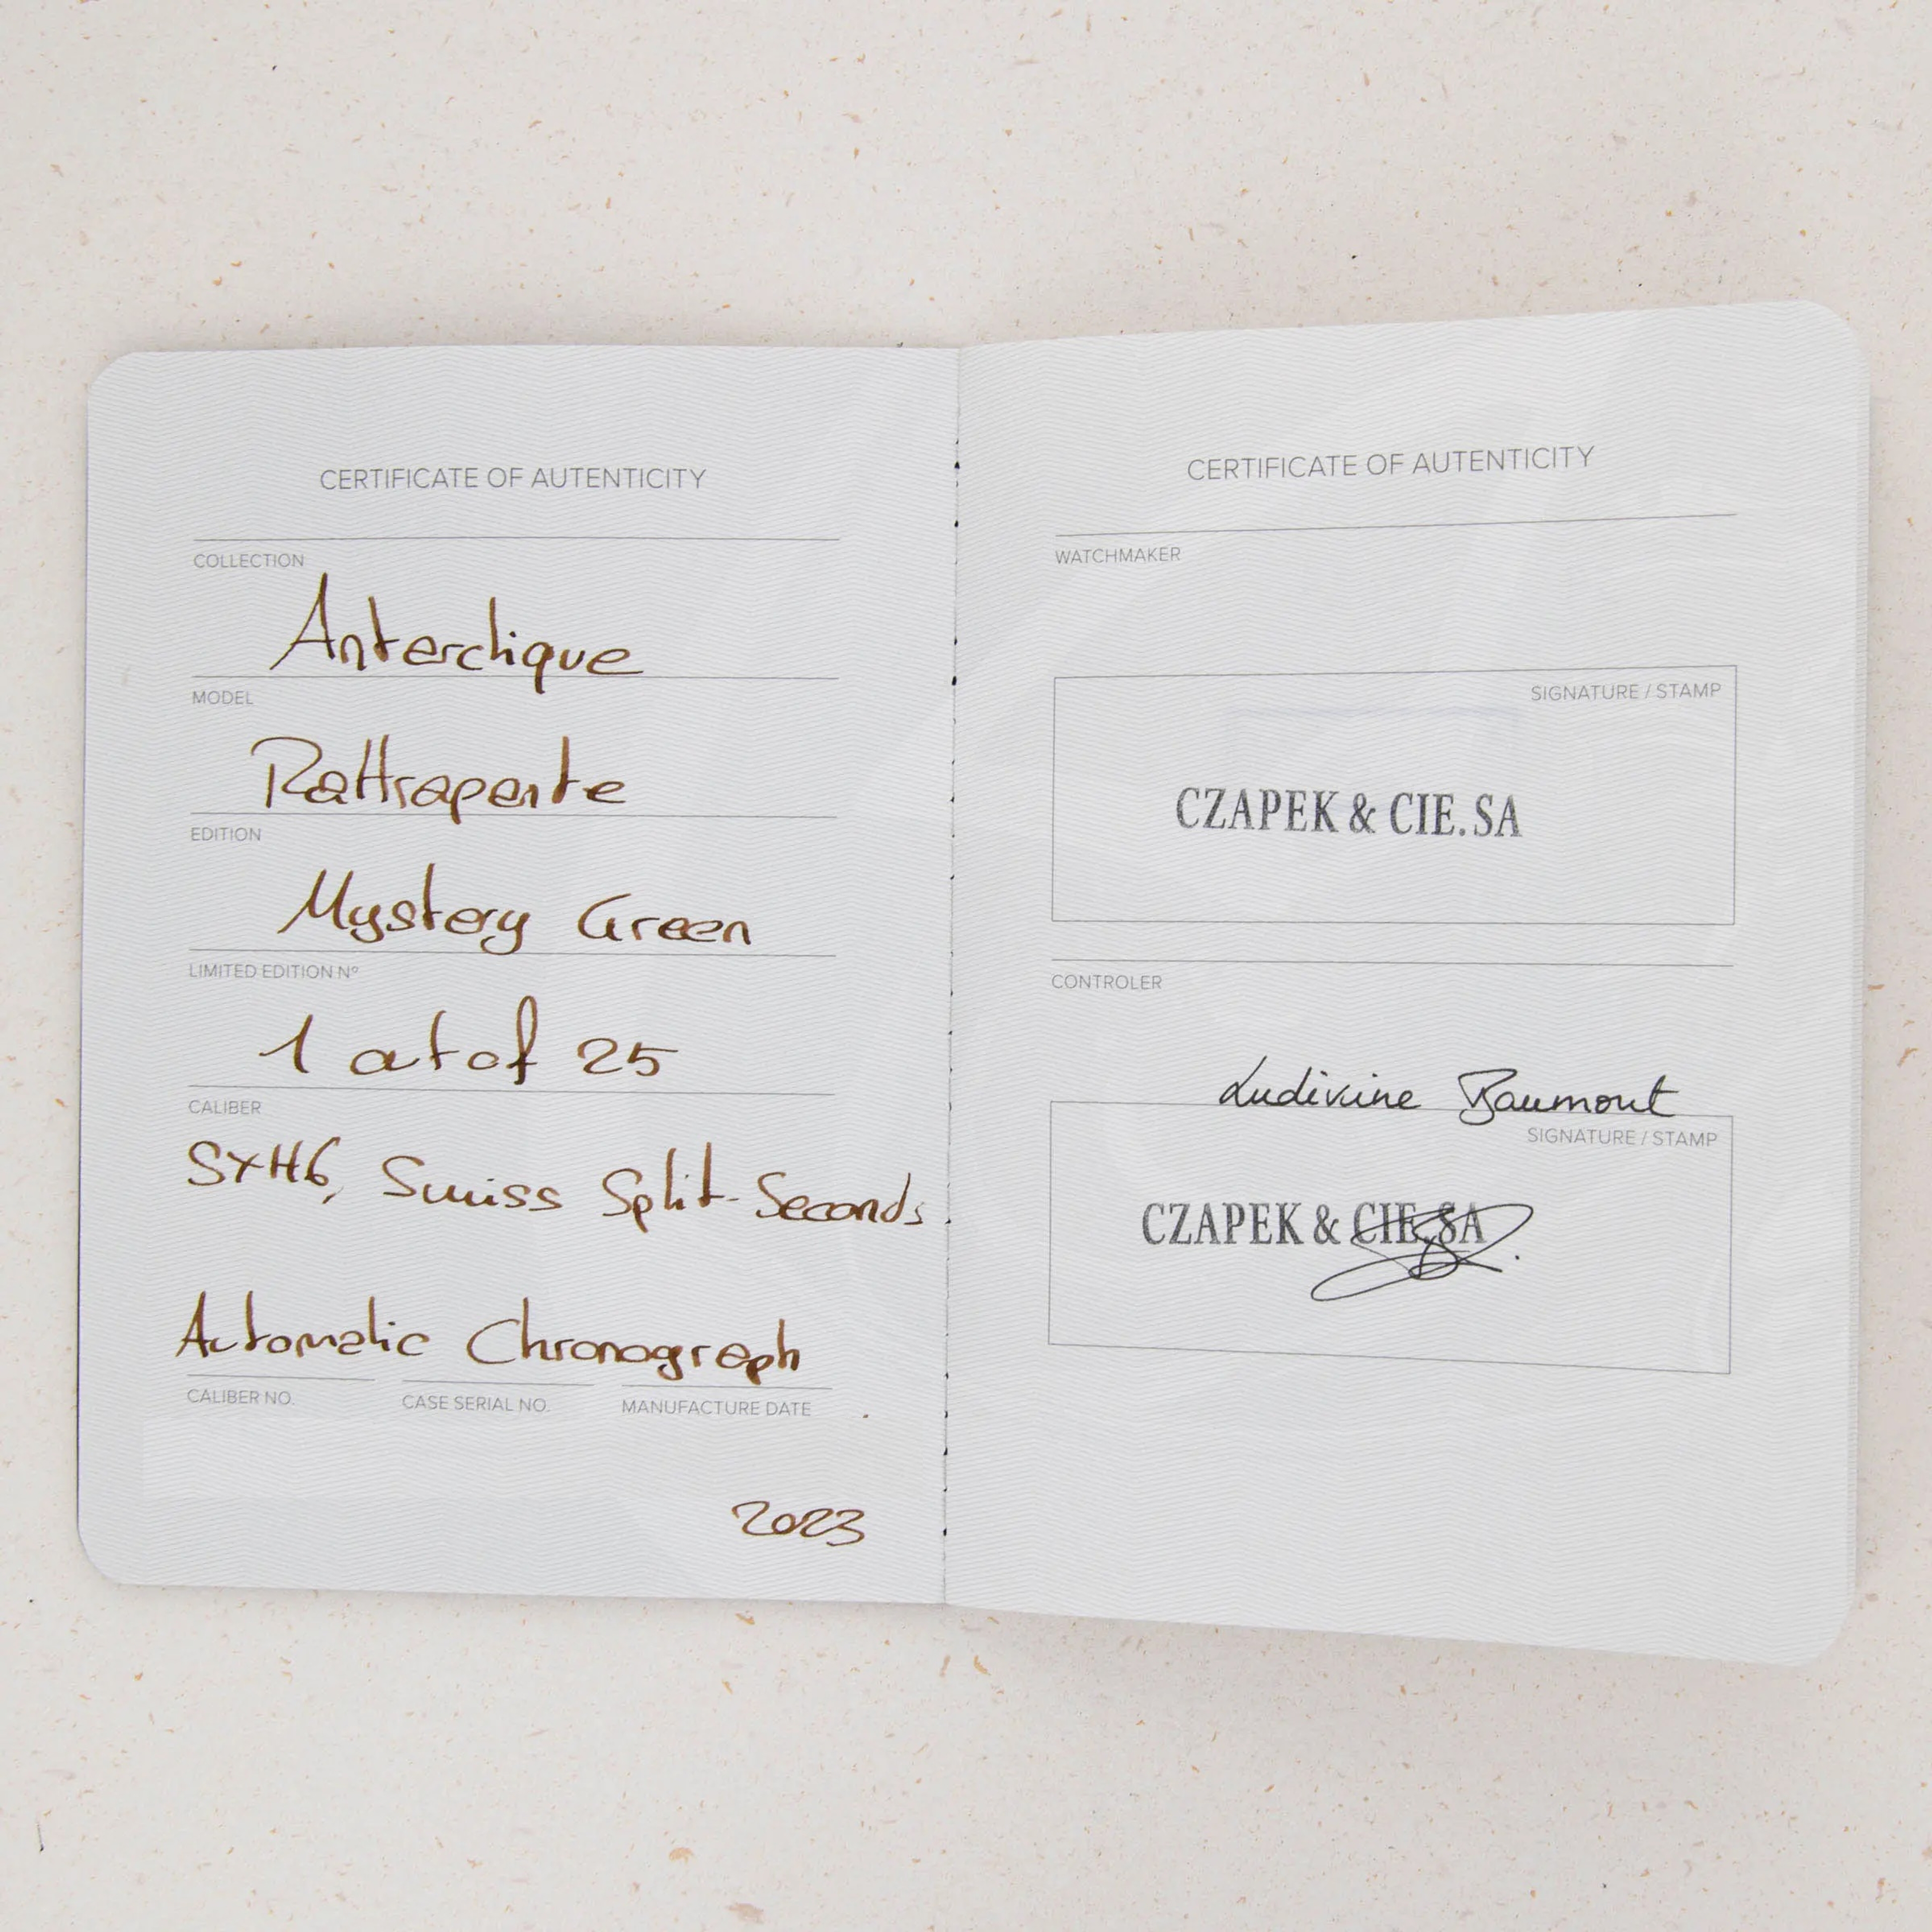 CERTIFICATE OF AUTENTICITY
COLLECTION
Antarctique
MODEL
Rattrapante
EDITION
Mystery Green
LIMITED EDITION Nº
1 out of 25
CALIBER
SXH6, Swiss Split-Seconds
Automatic Chronograph
CALIBER NO.
CASE SERIAL NO.
MANUFACTURE DATE
2023
CERTIFICATE OF AUTENTICITY
WATCHMAKER
SIGNATURE / STAMP
CZAPEK & CIE. SA
CONTROLER
Ludivine Baumont
SIGNATURE / STAMP
CZAPEK & CIE. SA